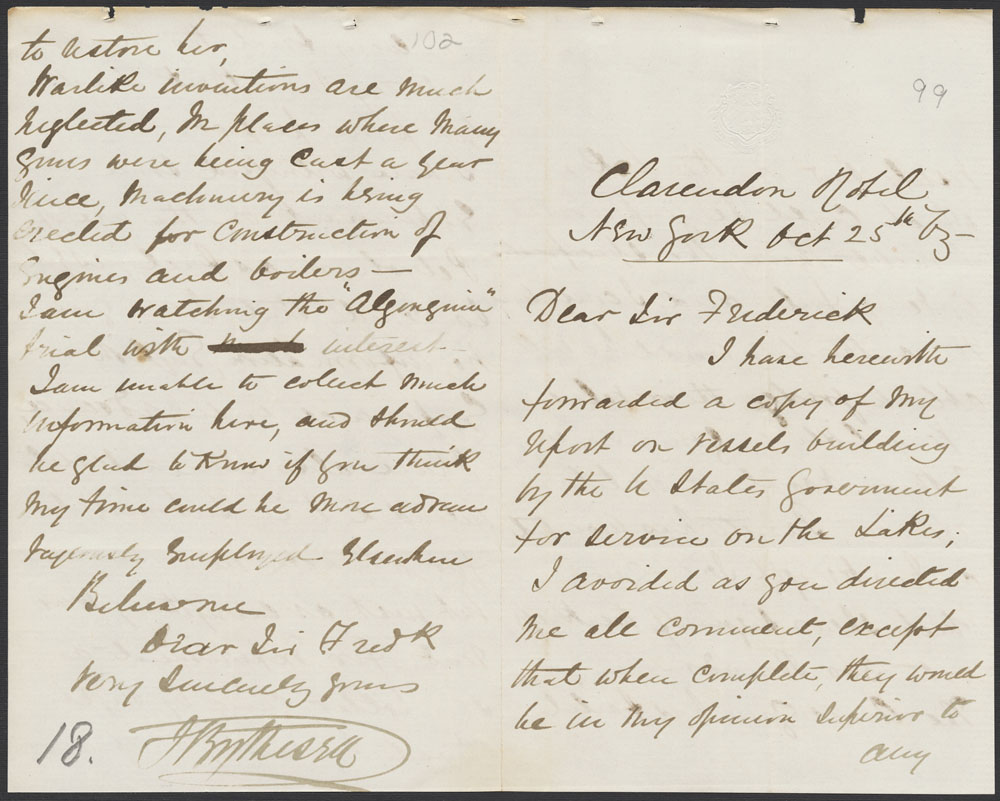 102
to restore her,
Warlike inventions are much
neglected, In places where Many
Guns were being Cast a year
since, Machinery is being
Erected for Construction of
Engines and boilers —
I am watching the "Algonquin"
trial with interest —
I am unable to collect much
information here, and should
be glad to Know if you think
My time could be More advan
tageously Employed Elsewhere
Believe me
Dear Sir Fredk
Very Sincerely yours
J Bythesea
18.
99
Clarendon Hotel
New York Oct 25th /65
Dear Sir Frederick
I have herewith
forwarded a copy of My
report on vessels building
by the U States Government
for service on the Lakes;
I avoided as you directed
me all comment, except
that when complete, they would
be in My opinion Superior to
any